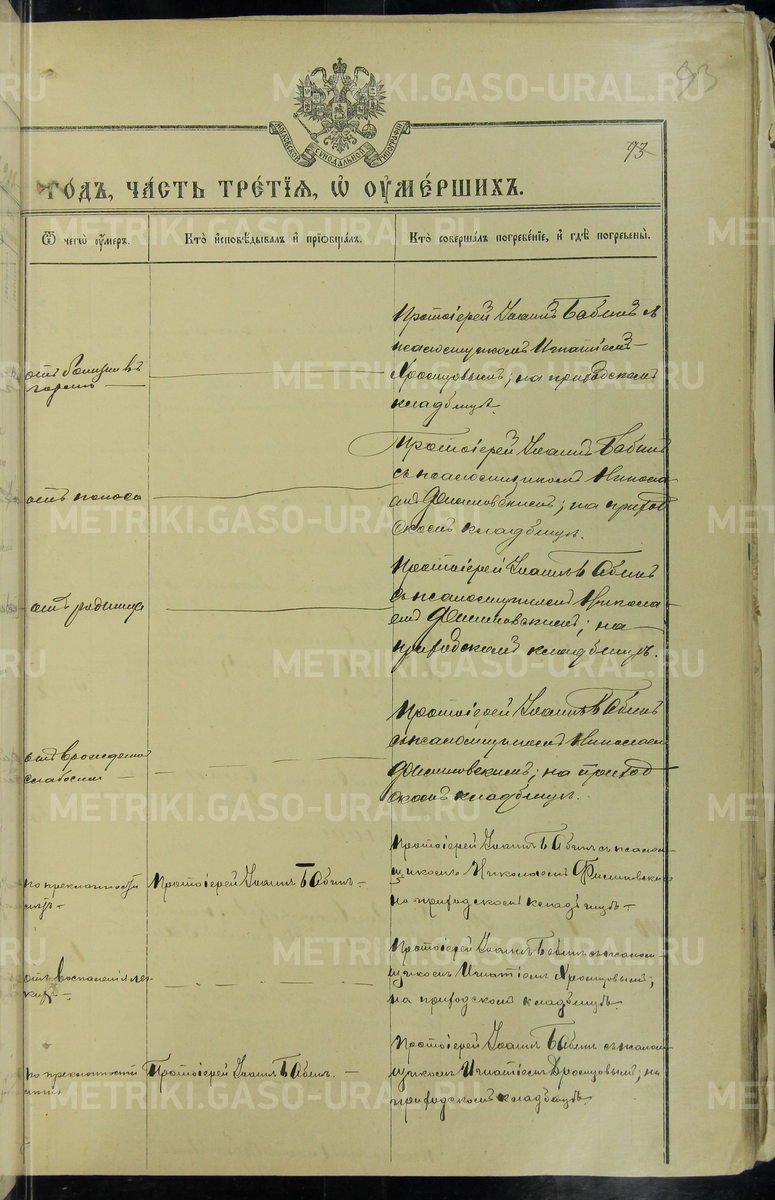 93
МОСКОВСКОЙ СѴНОДАЛЬНОЙ ТИПОГРАФІИ
93
годъ, часть третїѧ, ѡ оумершихъ.
Ѿ чегѡ оумеръ.
Кто исповѣдывалъ и прїобщалъ.
Кто совершалъ погребенїе, и гдѣ погребены.
отъ болизни въ
горлѣ
Протоіерей Іоаннъ Бабинъ съ
псаломщикомъ Игнатіемъ
на приходскомъ
кладбищѣ.
отъ поноса
Протоіерей Іоаннъ Бабинъ
съ псаломщикомъ Никола
емъ Филиповскимъ; на приход
скомъ кладбищѣ.
отъ родимца
Протоіерей Іоаннъ Бабинъ
съ псаломщикомъ Никола
емъ Филиповскимъ; на
приходскомъ кладбищѣ.
отъ врожденной
слабости
Протоіерей Іоаннъ Бабинъ
съ псаломщикомъ Николаемъ
Филиповскимъ; на приход
скомъ кладбищѣ.
по преклонности
лѣтъ
Протоіерей Іоаннъ Бабинъ
Протоіерей Іоаннъ Бабинъ съ псалом
щикомъ Николаемъ Филиповскимъ
на приходскомъ кладбищѣ
отъ воспаленія лег
кихъ
Протоіерей Іоаннъ Бабинъ съ псалом
щикомъ Игнатіемъ
на приходскомъ кладбищѣ.
по преклонности
лѣтъ
Протоіерей Іоаннъ Бабинъ.
Протоіерей Іоаннъ Бабинъ съ псалом
щикомъ Игнатіемъ на
приходскомъ кладбищѣ.
METRIKI.GASO-URAL.RU